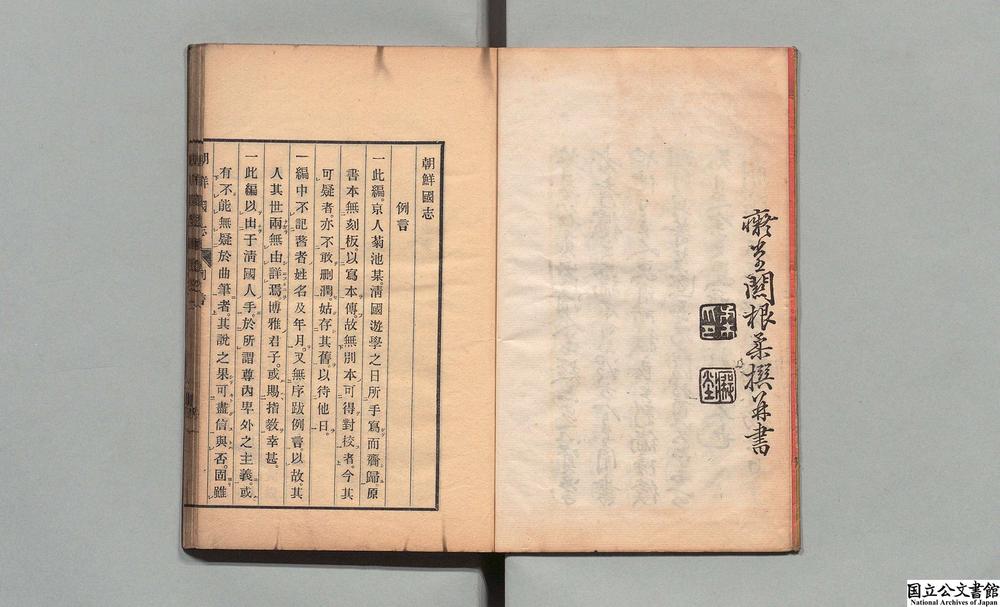 癡堂關根柔撰并書
朝鮮國志
例言
一此編。京人菊池某。淸國遊學之日所手寫而齎歸。原
書本無刻板。以寫本傳。故無別本可得對校者。今其
可疑者。亦不敢刪潤。姑存其舊。以待他日。
一編中不記著者姓名及年月。又無序跋例言。以故其
人其世兩無由詳焉。博雅君子。或賜指敎幸甚。
一此編以出于淸國人手。於所謂尊內卑外之主義。或
有不能無疑於曲筆者。其說之果可盡信與否。固雖
朝鮮國志
例言
国立公文書館
National Archives of Japan